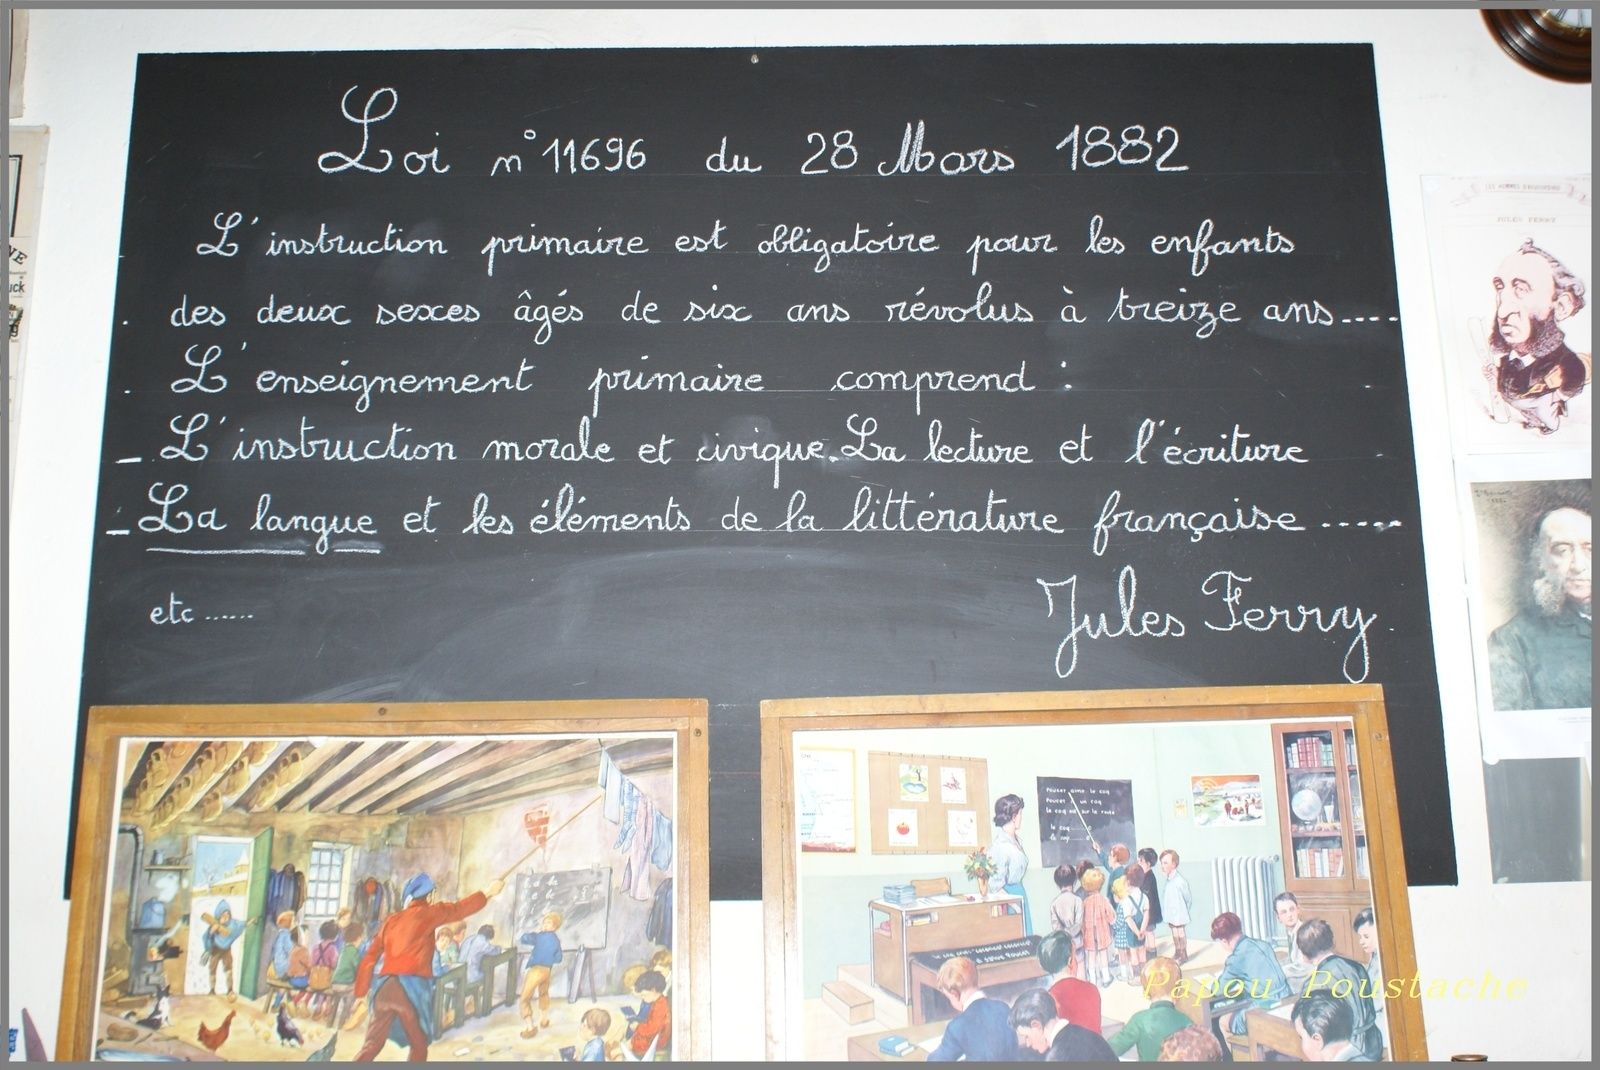 Loi n°11696 du 28 Mars 1882
L'instruction primaire est obligatoire pour les enfants
des deux sexes âgés de six ans révolus à treize ans....
L'enseignement primaire comprend :
_ L'instruction morale et civique. La lecture et l'écriture
_ La langue et les éléments de la littérature française .....
etc ......
Jules Ferry
LES HOMMES D'AUJOURD'HUI
JULES FERRY
Poucet aime le coq
Poucet a un coq
le coq est sur la route
le coq
Papou Poustache